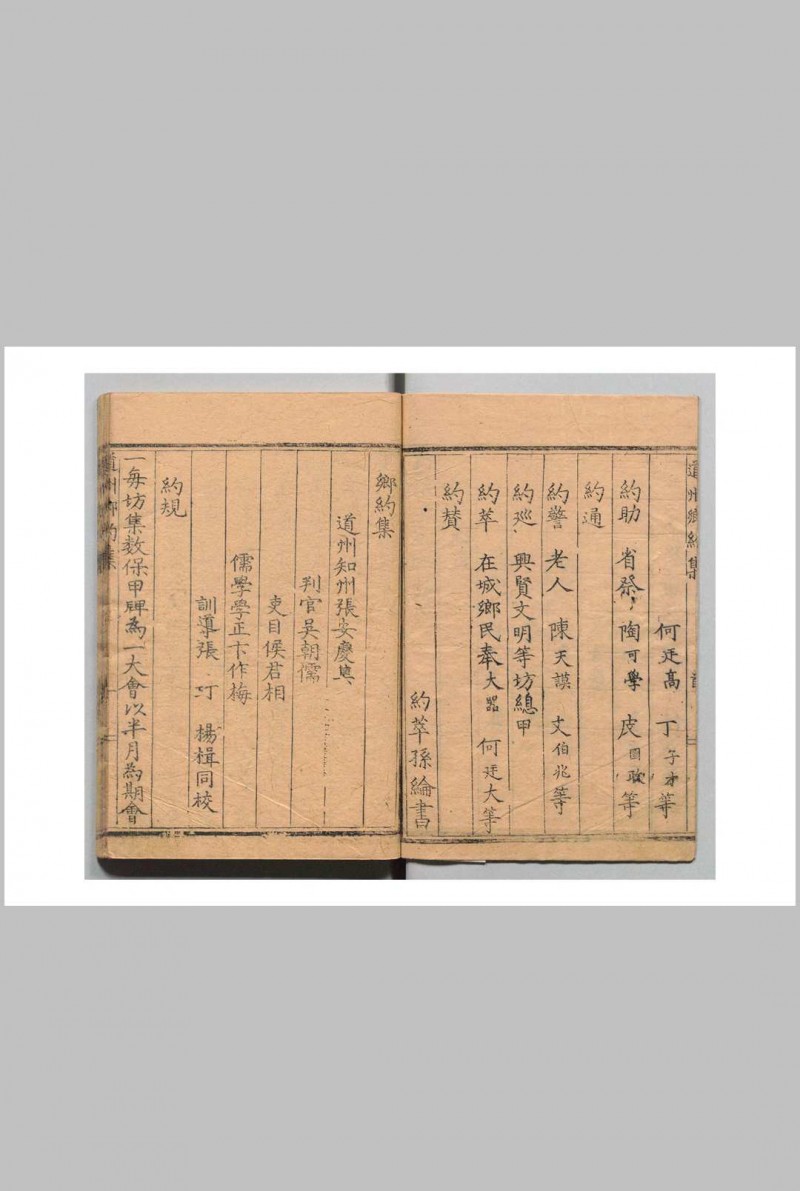 道州鄉約集
何廷高 丁子才等
約助 省祭 陶可學 皮等
約通
約警 老人 陳天謨 文伯兆等
約巡 興賢文明等坊總甲
約萃 在城鄉民奉大器 何廷大等
約贊
約萃孫綸書
鄉約集
道州知州張安慶輿
判官吳朝儒
吏目侯君相
儒學學正卞作梅
訓導張 楊楫同校
約規
一每坊集数保甲牌為一大會以半月為期會
道州鄉約集